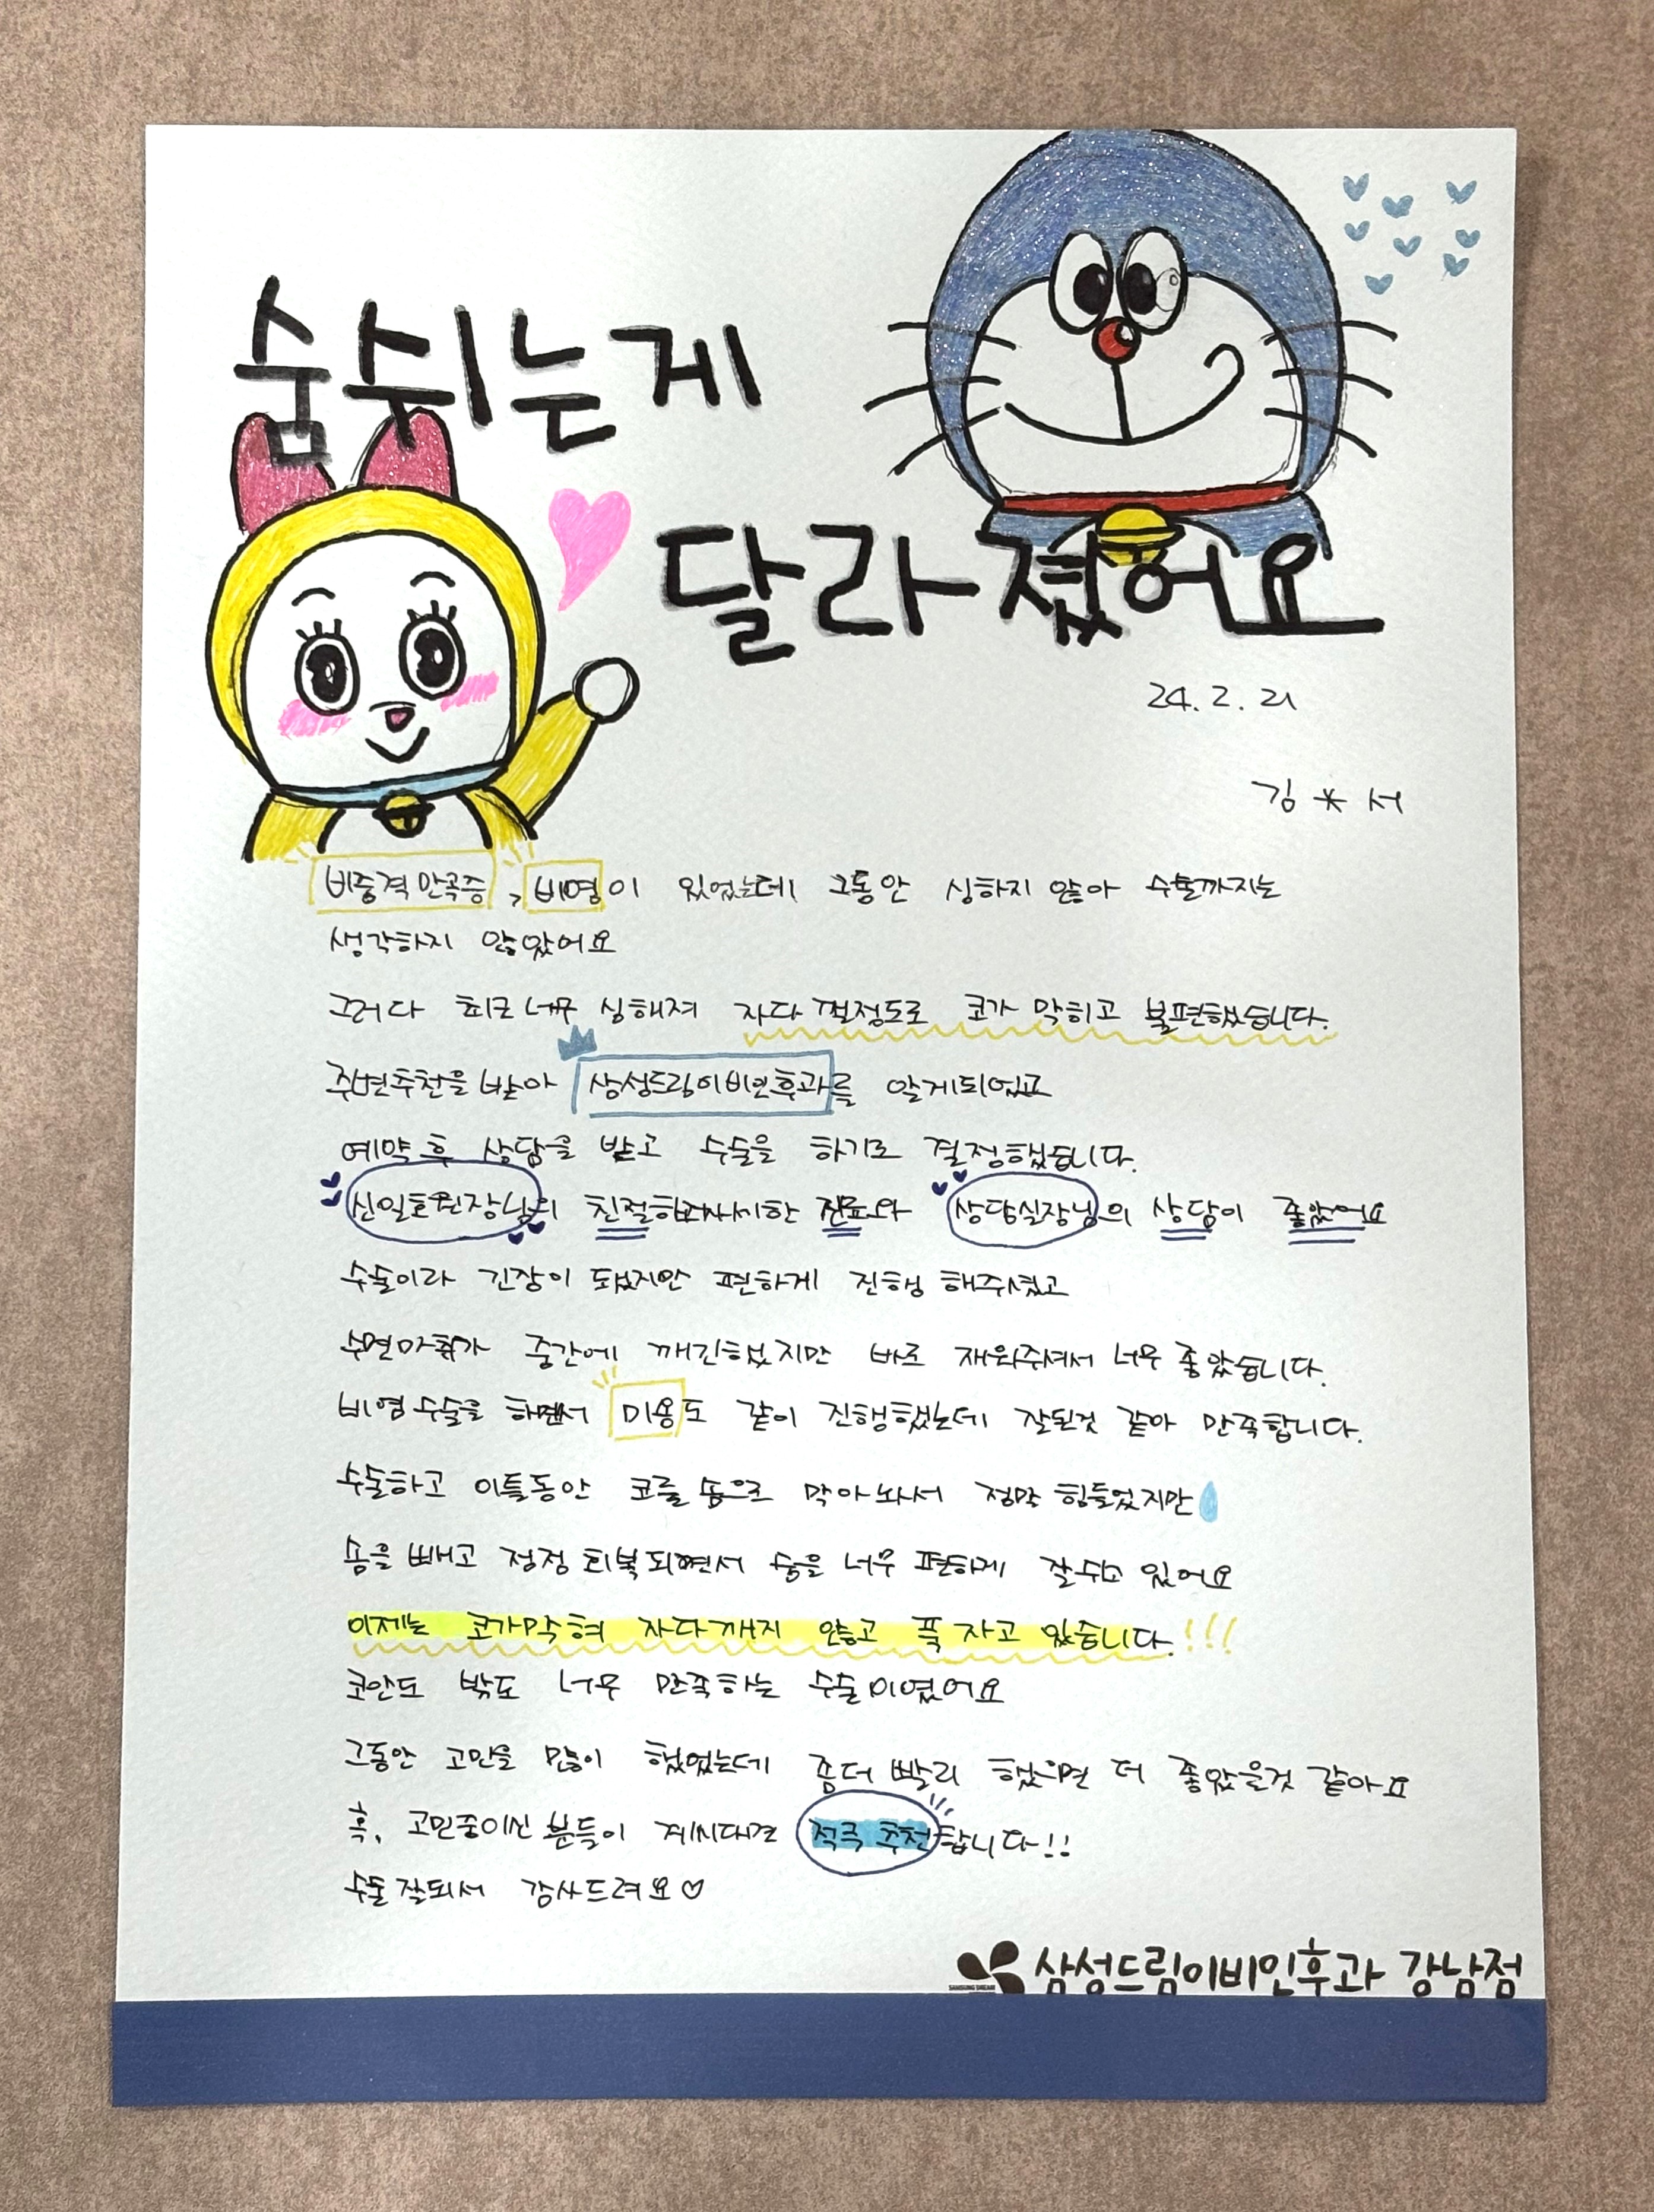 숨쉬는게
달라졌어요
24. 2. 21
김 * 서
비중격만곡증, 비염이 있었는데 그동안 심하지 않아 수술까지는
생각하지 않았어요
그러다 최근 너무 심해져 자다 깰정도로 코가 막히고 불편했습니다.
주변추천을 받아 삼성드림이비인후과를 알게되었고
예약 후 상담을 받고 수술을 하기로 결정했습니다.
신일호원장님의 친절하고자세한 진료와 상담실장님의 상담이 좋았어요
수술이라 긴장이 됐지만 편하게 진행 해주셨고
수면마취가 중간에 깨긴했지만 바로 재워주셔서 너무 좋았습니다.
비염수술을 하면서 미용도 같이 진행했는데 잘된것 같아 만족합니다.
수술하고 이틀동안 코를 솜으로 막아놔서 정막 힘들었지만
솜을 빼고 점점 회복되면서 숨을 너무 편하게 잘쉬고 있어요
이제는 코가막혀 자다깨지 않고 푹 자고 있습니다. !!!
코안도 밖도 너무 만족하는 수술이였어요
그동안 고민을 많이 했었는데 좀더 빨리 했으면 더 좋았을것 같아요
혹, 고민중이신 분들이 계시다면 적극 추천합니다!!
수술 잘되서 감사드려요♡
SAMSUNG DREAM 삼성드림이비인후과 강남점